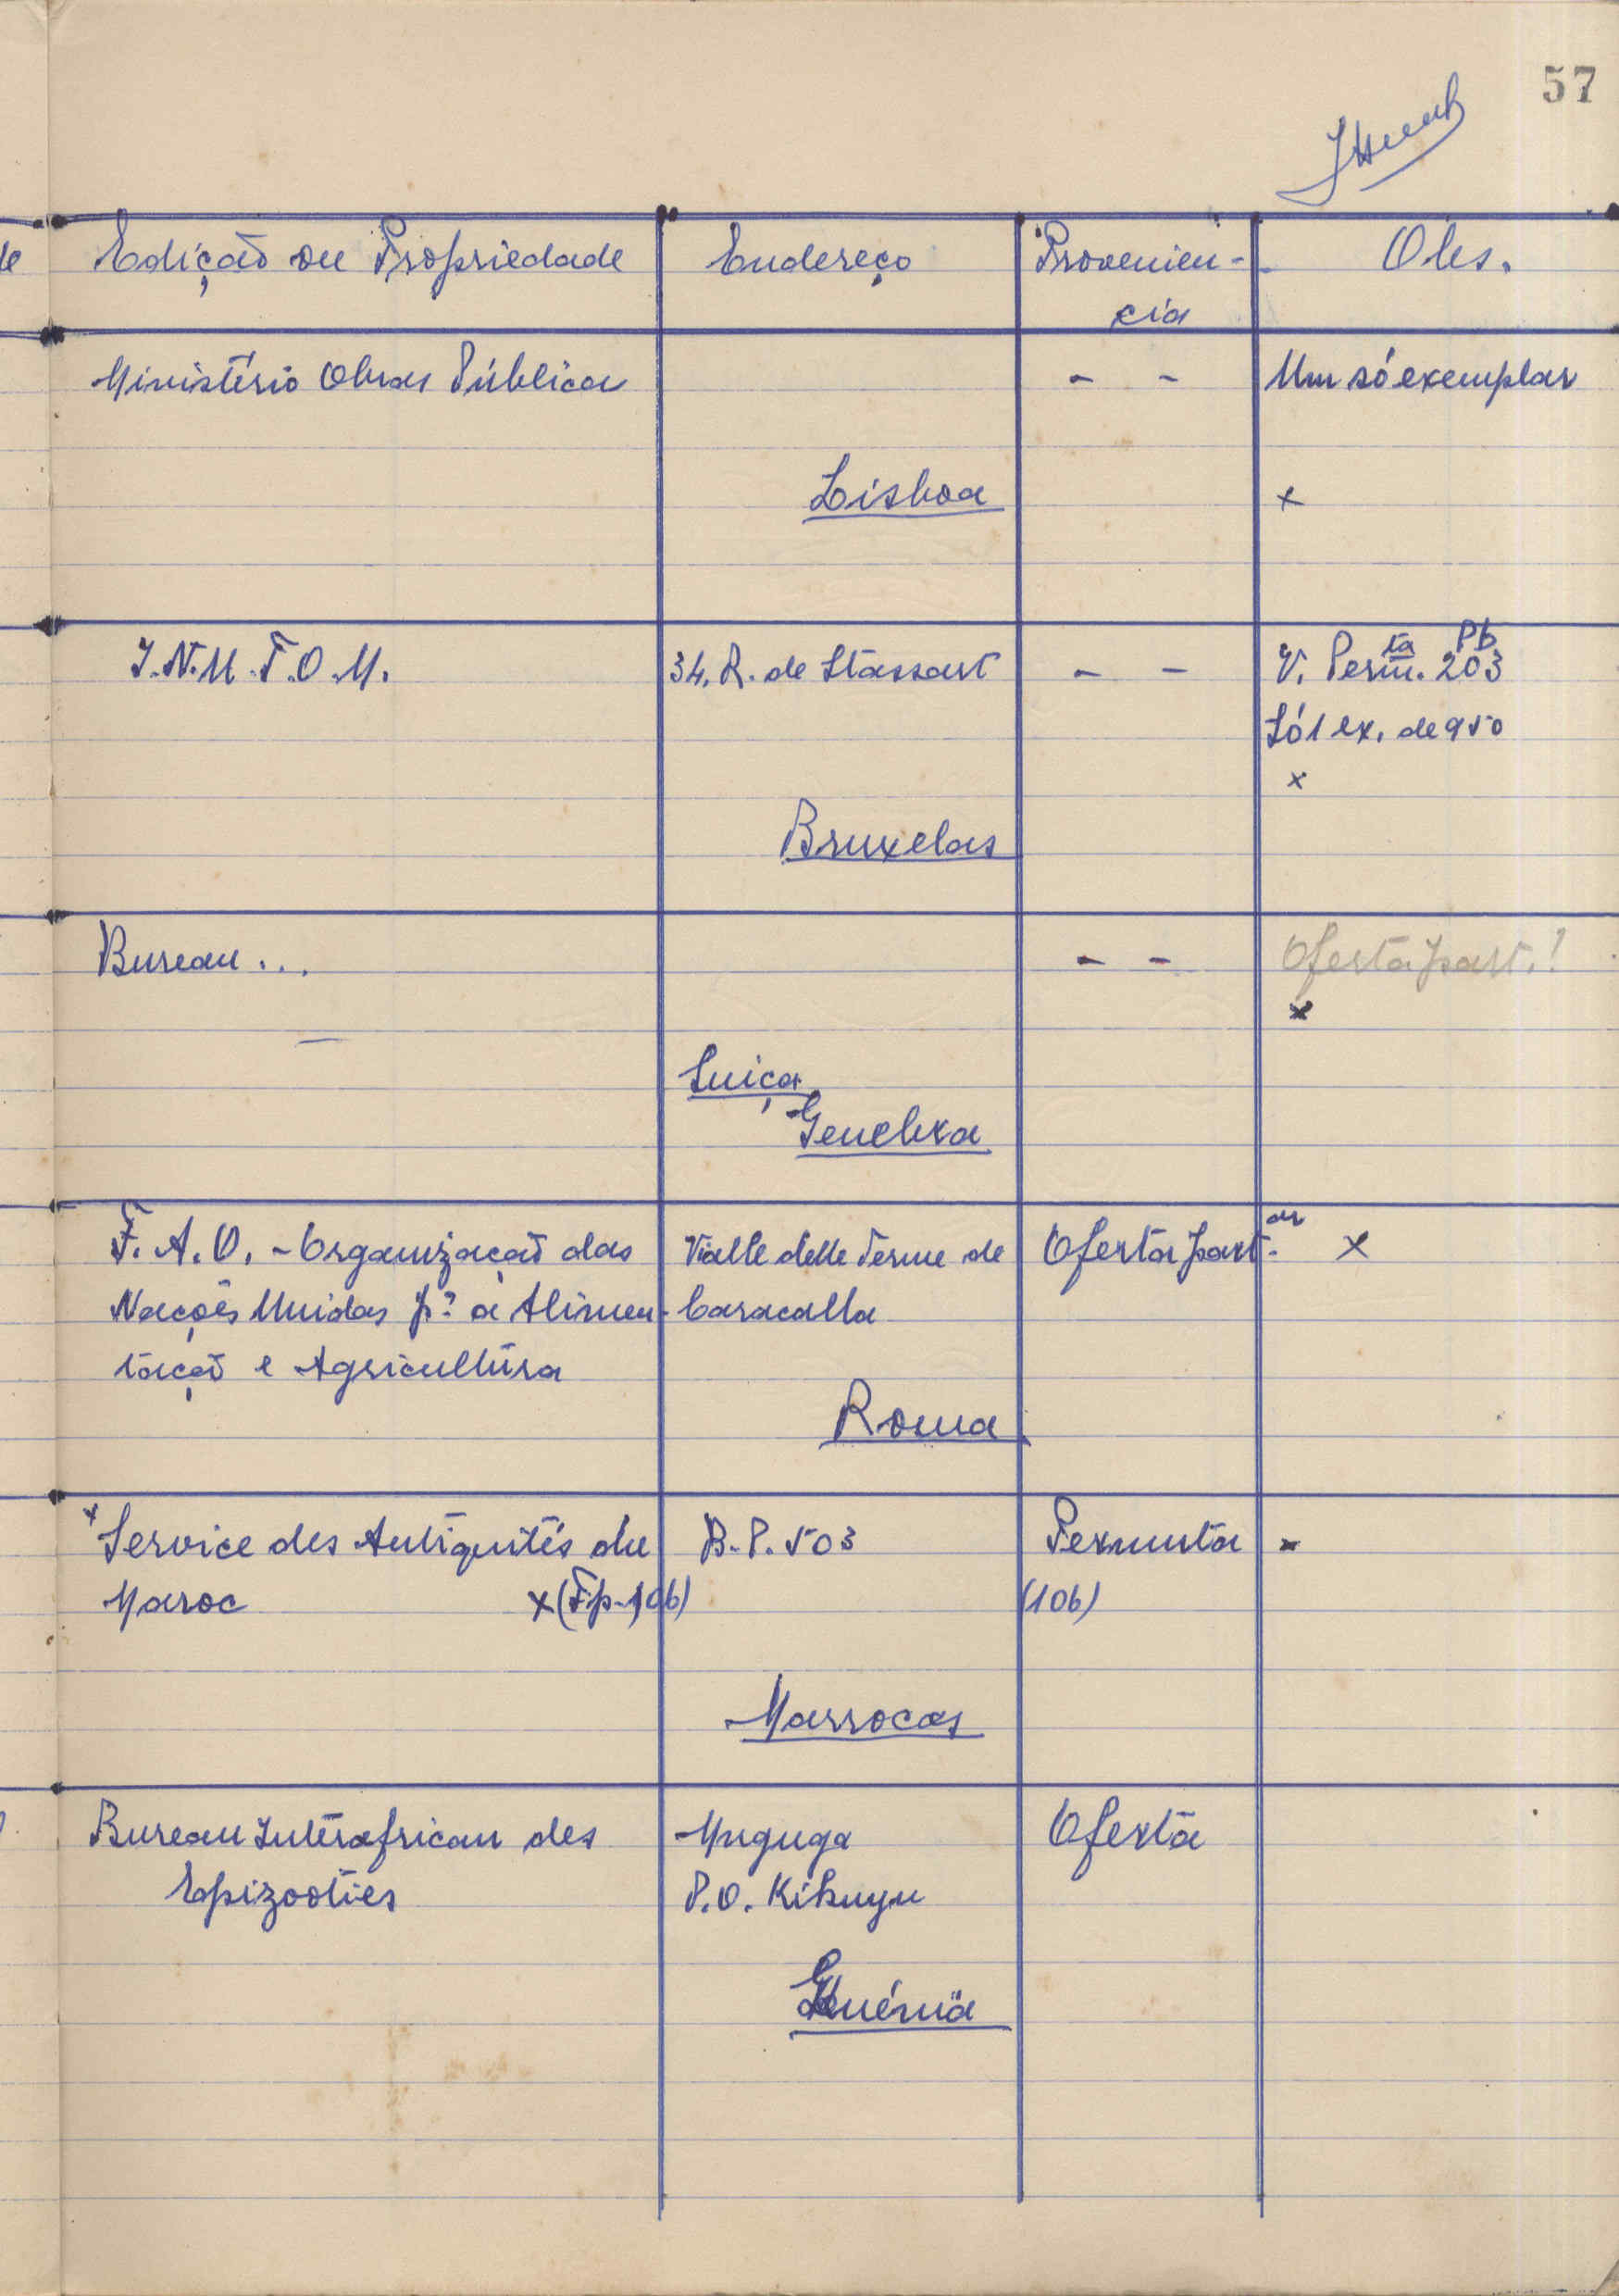 57
Edição ou Propriedade Endereço Provenien- Obs.
cia
Ministério Obras Pública - - Um só exemplar
Lisboa x
I.N.U.T.O.M. 34. R. de Stassart - - V. Perm.ta Pb 203
Só 1 ex. de 950
x
Bruxelas
Bureau... - - Oferta part.!
x
Suiça
Genebra
F.A.O. - Organização das Vialle delle Terme de Oferta part.ar x
Nações Unidas p.ª a Alimen- Caracalla
tação e Agricultura
Roma
x Service des Antiquités du B.P. 503 Permuta -
Maroc x (Fp-106) (106)
Marrocos
Bureau Interafrican des Muguga Oferta
Epizooties P.O. Kikuyu
Quénia